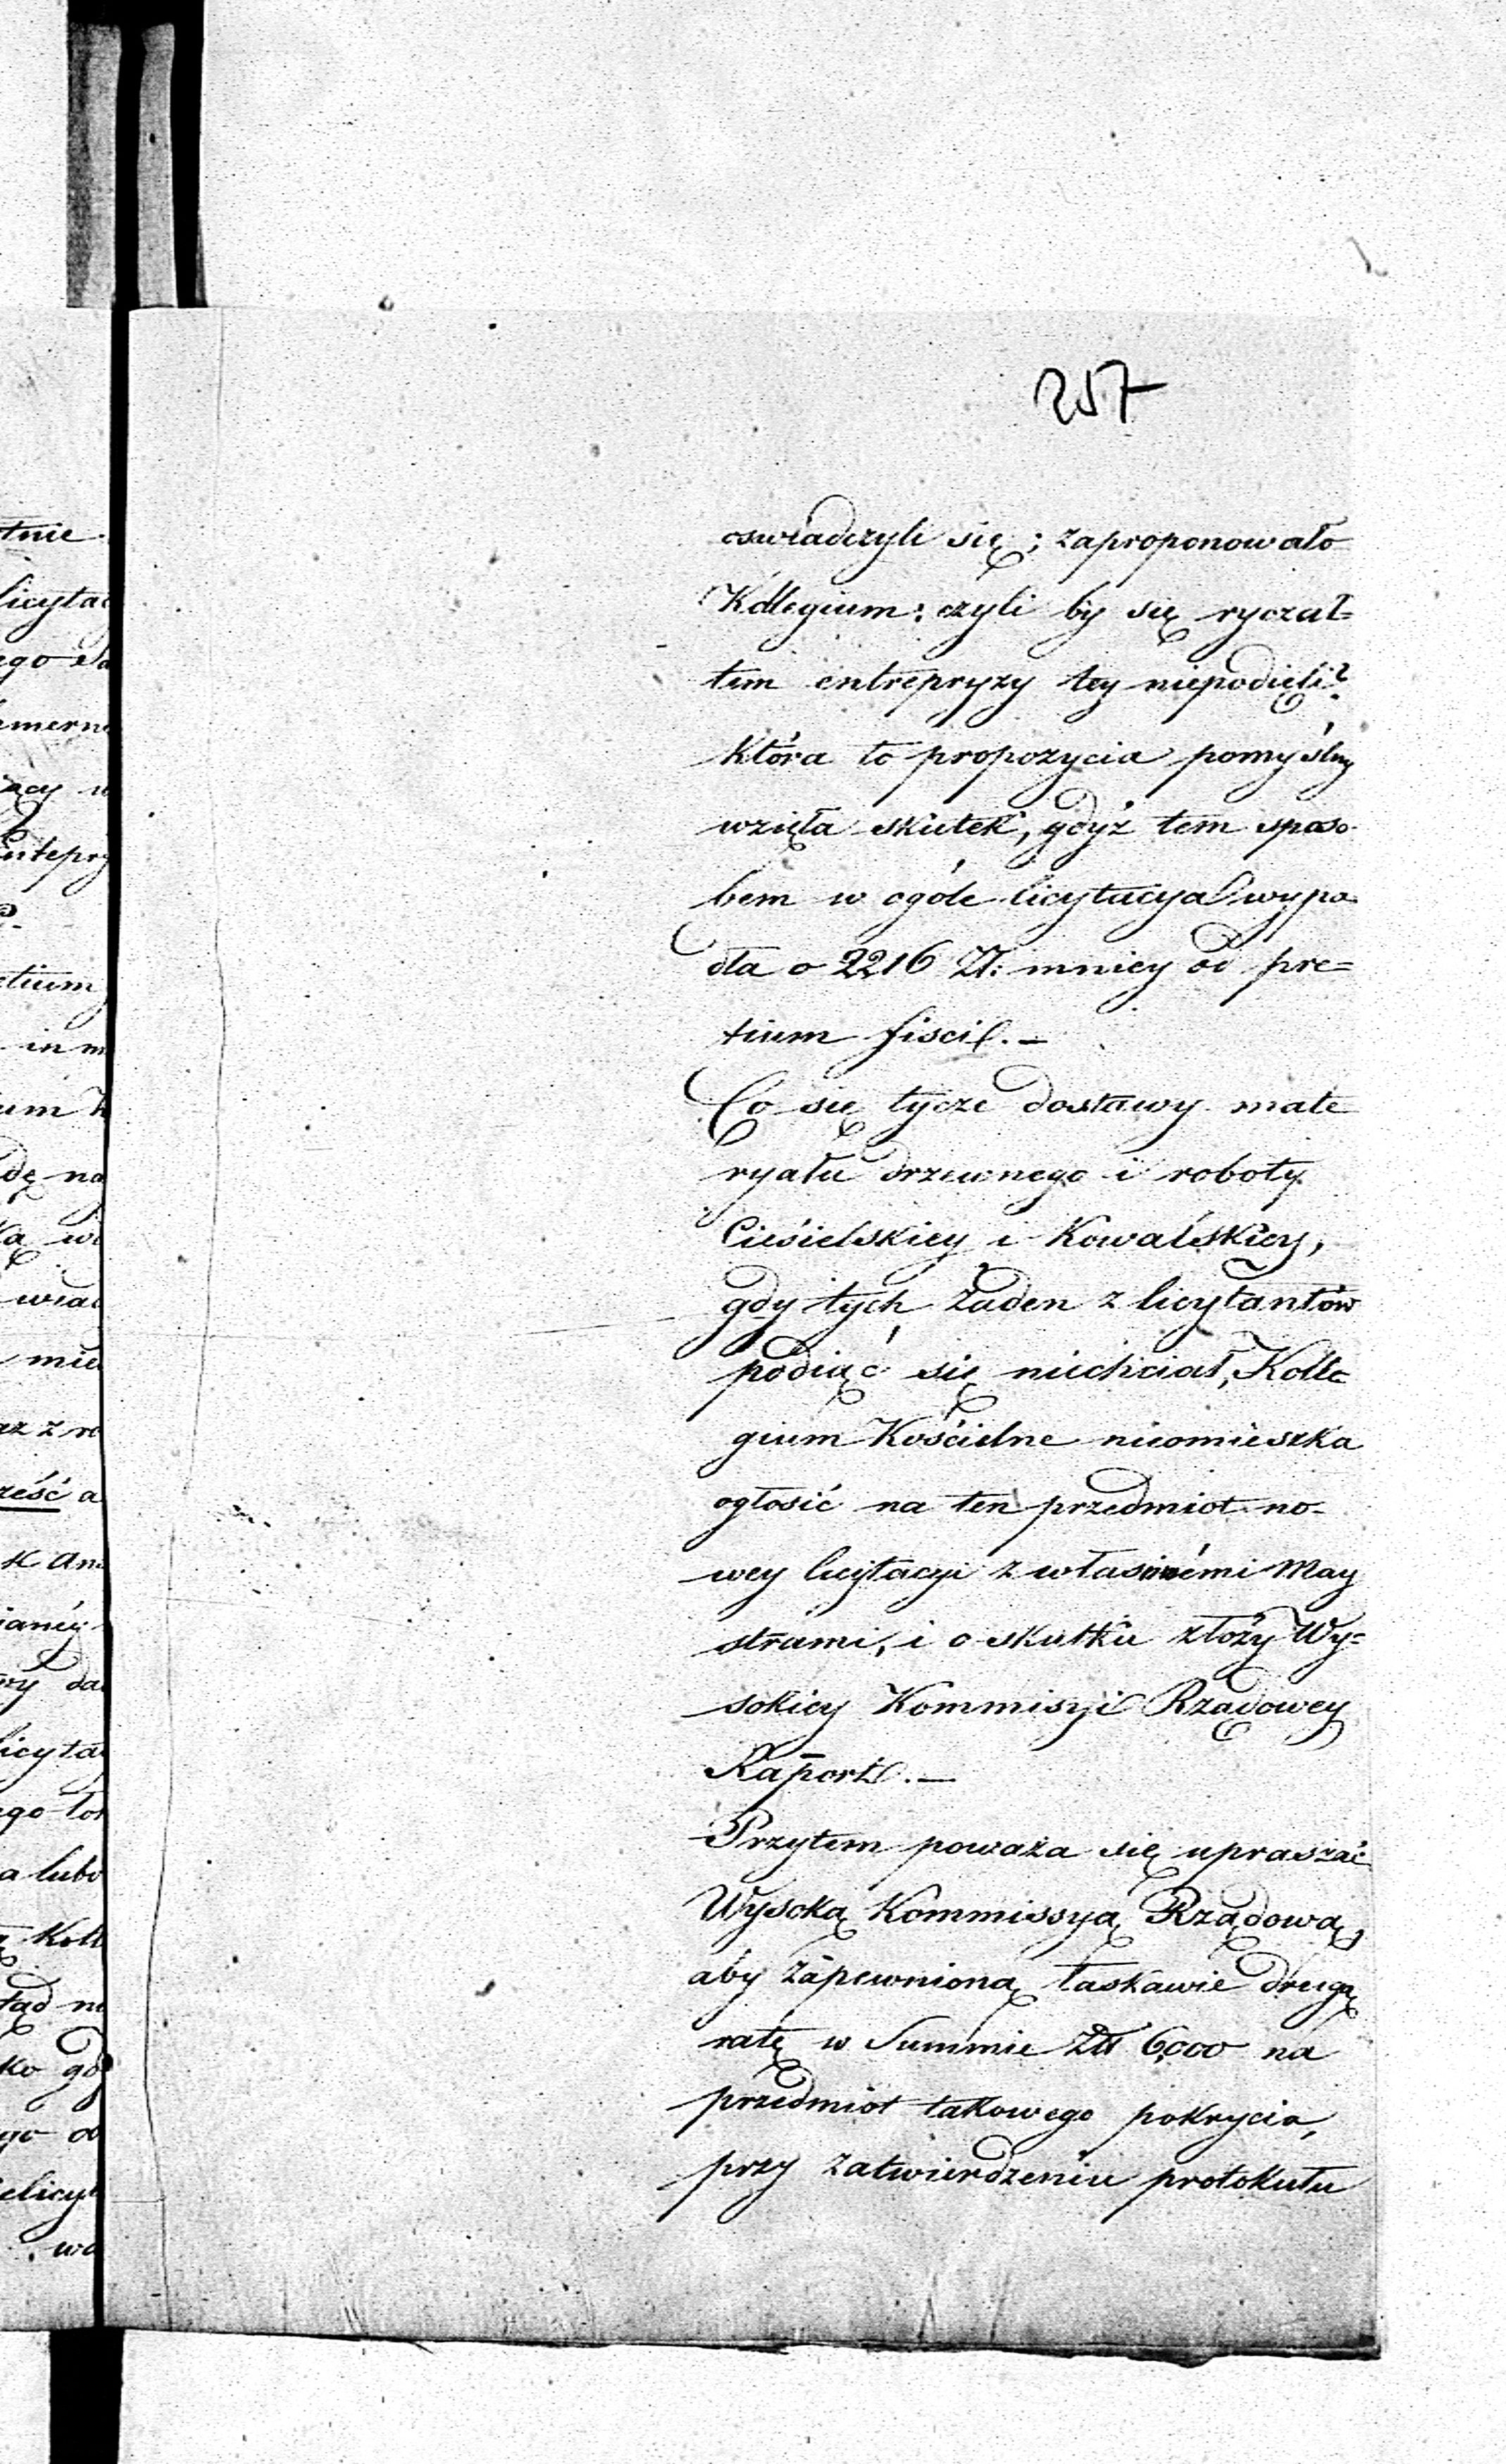 257
oswiadczyli się; zaproponowało
Kollegium: czyli by się ryczał=
tem entrepryzy tey niepodięli?
Która to propozycia pomyślny
wzięła skutek, gdyż tem sposo-
bem w ogóle licytacya wypa-
dła o 2216 Zł: mniey od pre=
tium fisci. —
Co się tycze dostawy mate
ryału drzewnego i roboty
Ciesielskiey i Kowalskiey,
gdy tych żaden z licytantów
podiąć się niechciał, Kolle
gium Kościelne nieomieszka
ogłosić na ten przedmiot no-
wey licytacyi z własnémi May
strami, i o skutku złoży Wy=
sokiey Kommisyi Rządowey
Raport. —
Przytem poważa się upraszać
Wysoką Kommissyą Rządową,
aby zapewnioną łaskawie drugą
ratę w Summie Złł 6,000 na
przedmiot takowego pokrycia,
przy zatwierdzeniu protokułu